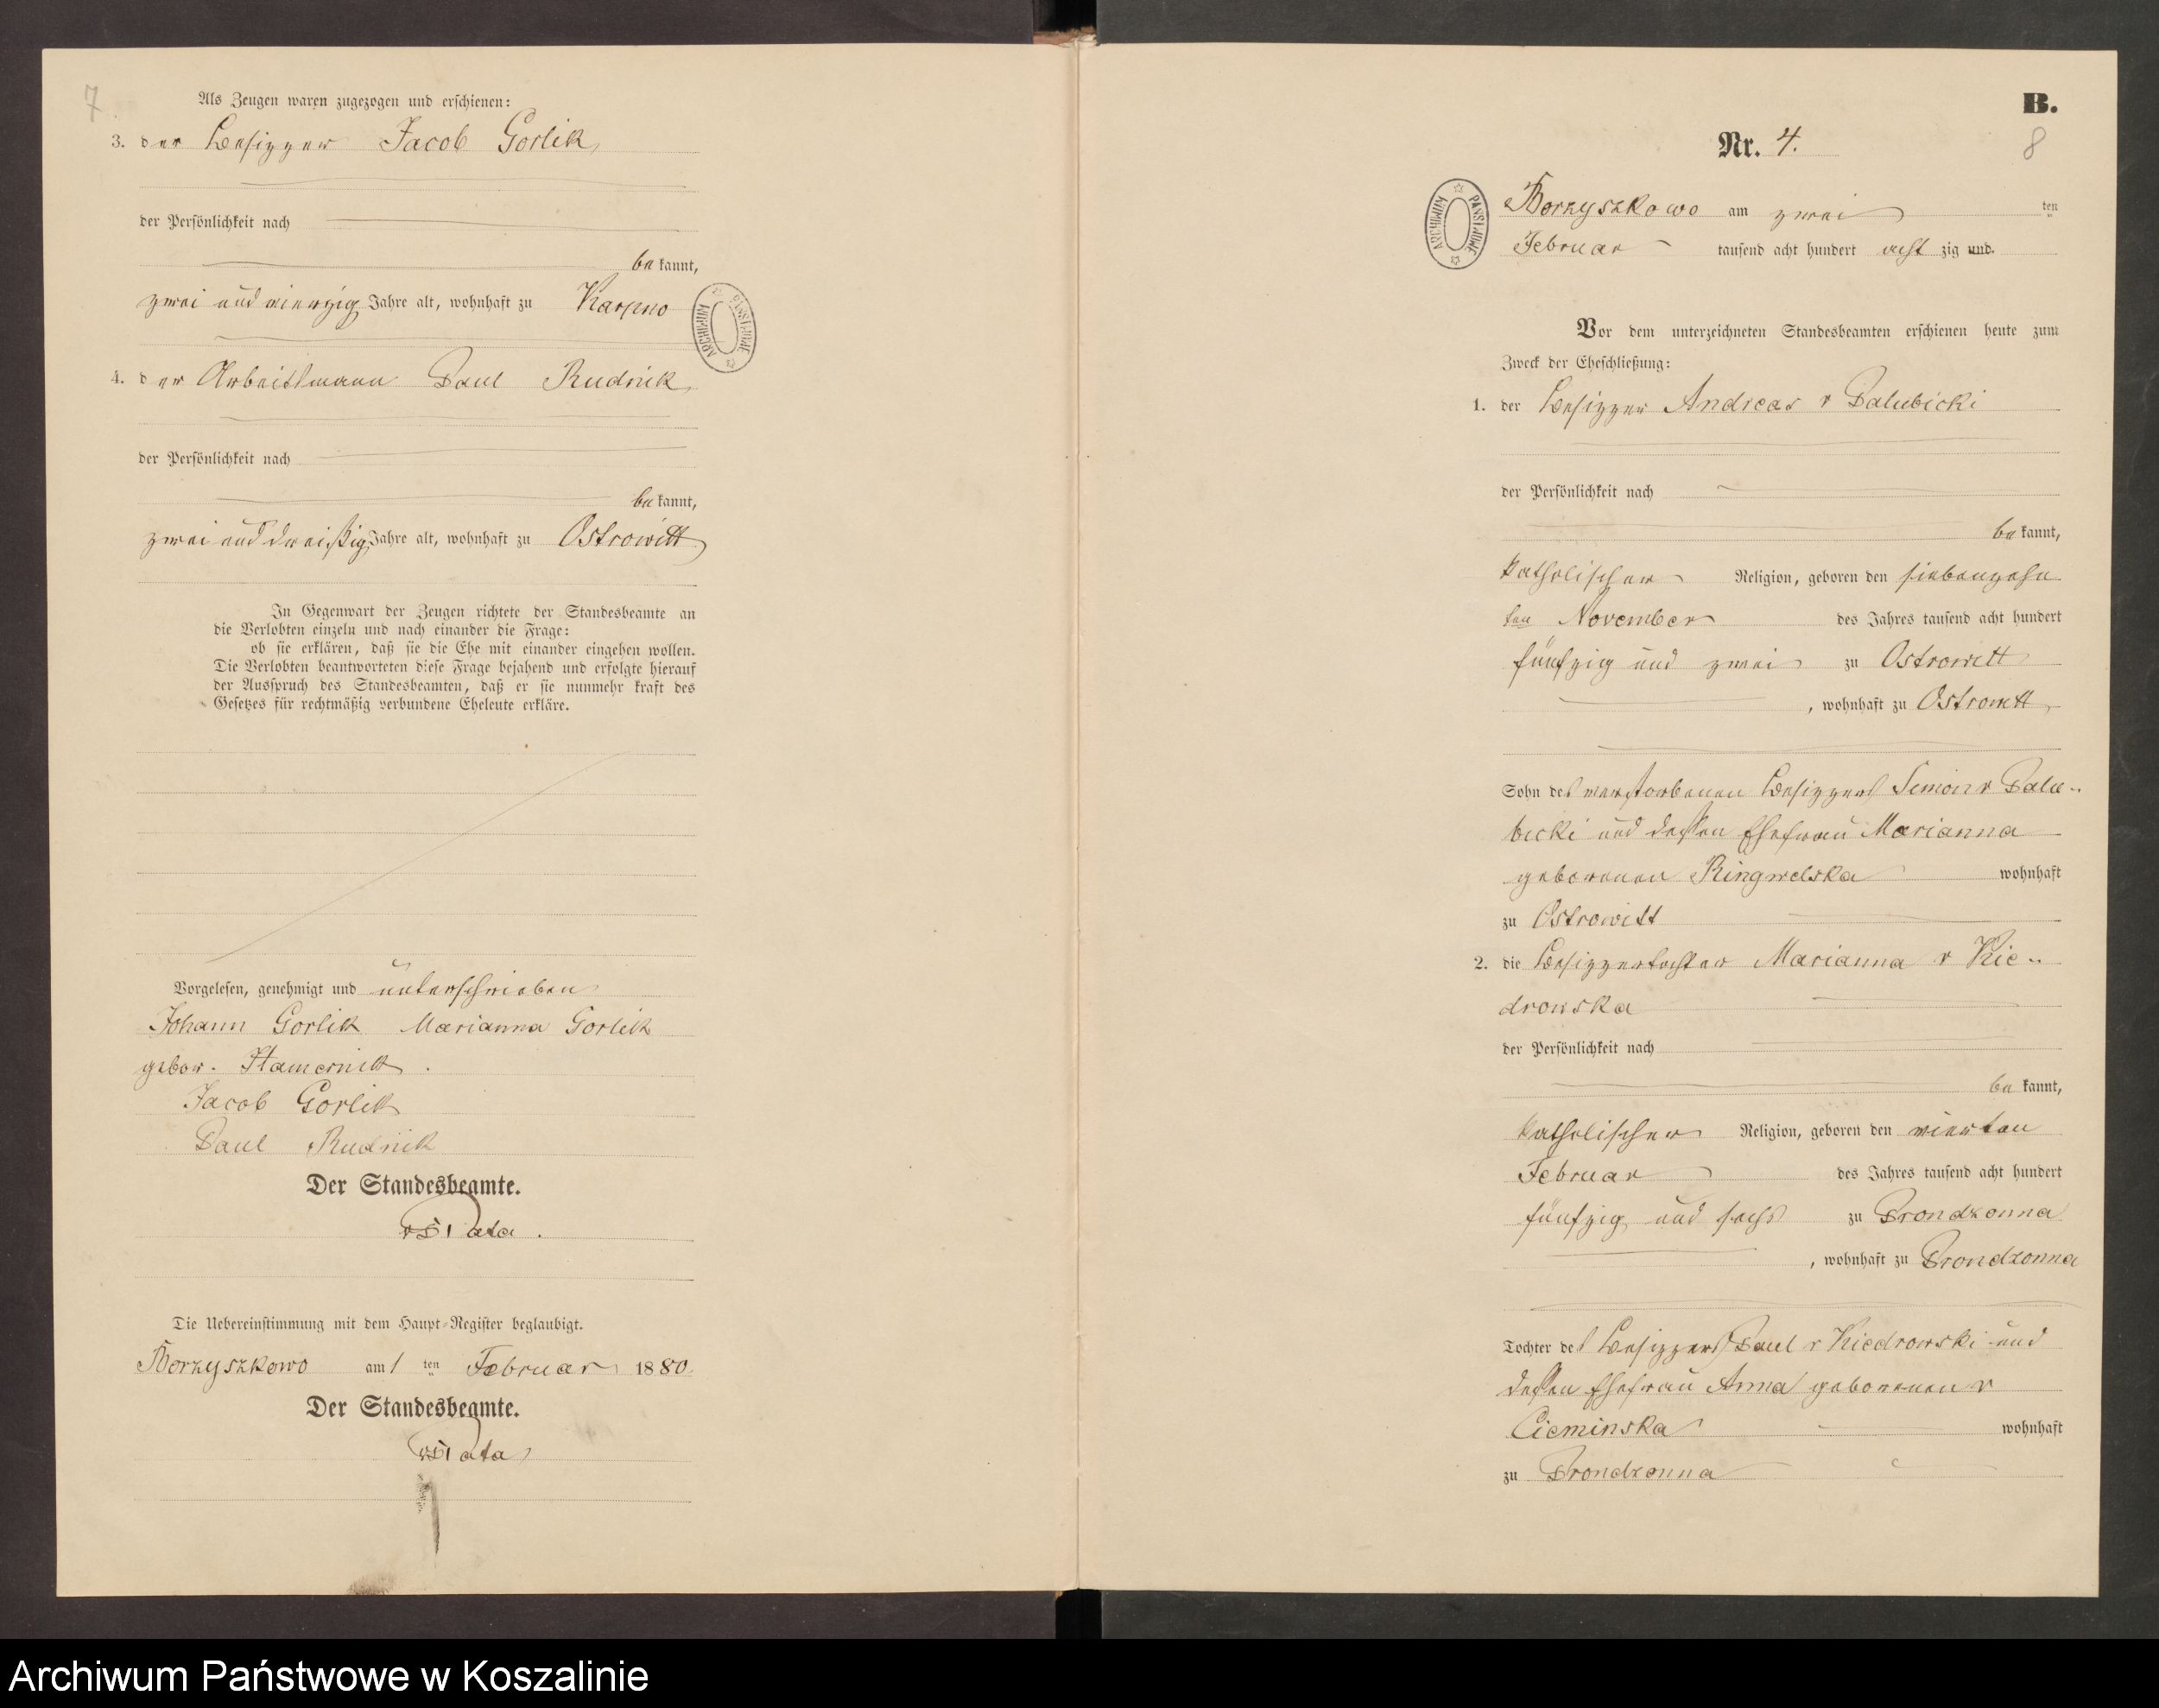 7
Als Zeugen waren zugezogen und erschienen:
3. der Besizzer Jacob Gorlik
der Persönlichkeit nach
be kannt,
zwei und vierzig Jahre alt, wohnhaft zu Karpno
4. der Arbeitsmann Paul Rudnik
der Persönlichkeit nach
be kannt,
zwei und dreißig Jahre alt, wohnhaft zu Ostrowitt
In Gegenwart der Zeugen richtete der Standesbeamte an
die Verlobten einzeln und nach einander die Frage:
ob sie erklären, daß sie die Ehe mit einander eingehen wollen.
Die Verlobten beantworteten diese Frage bejahend und erfolgte hierauf
der Ausspruch des Standesbeamten, daß er sie nunmehr kraft des
Gesetzes für rechtmäßig verbundene Eheleute erkläre.
Vorgelesen, genehmigt und unterschrieben
Johann Gorlik Marianna Gorlik
gebor.
Jacob Gorlik
Paul Rudnik
Der Standesbeamte.
Die Uebereinstimmung mit dem Haupt-Register beglaubigt.
Borzyszkowo am 1 ten Februar 1880.
Der Standesbeamte.
ARCHIWUM PAŃSTWOWE
B.
Nr. 4.
8
ARCHIWUM PAŃSTWOWE
Borzyszkowo am zwei ten
Februar tausend acht hundert acht zig und.
Vor dem unterzeichneten Standesbeamten erschienen heute zum
Zweck der Eheschließung:
1. der Besizzer Andreas v Palubicki
der Persönlichkeit nach
be kannt,
katholischer Religion, geboren den siebenzehn
ten November des Jahres tausend acht hundert
fünfzig und zwei zu Ostrowitt
, wohnhaft zu Ostrowitt
Sohn des verstorbenen Besizzers Simon v Palu-
bicki und dessen Ehefrau Marianna
geborenen Ringwelska wohnhaft
zu Ostrowitt
2. die Besizzertochter Marianna v Kie-
drowska
der Persönlichkeit nach
be kannt,
katholischer Religion, geboren den vierten
Februar des Jahres tausend acht hundert
fünfzig und sechs zu Prondzonna
, wohnhaft zu Prondzonna
Tochter des Besizzers Paul v Kiedrowski und
dessen Ehefrau Anna geborenen v
Cieminska wohnhaft
zu Prondzonna
Archiwum Państwowe w Koszalinie